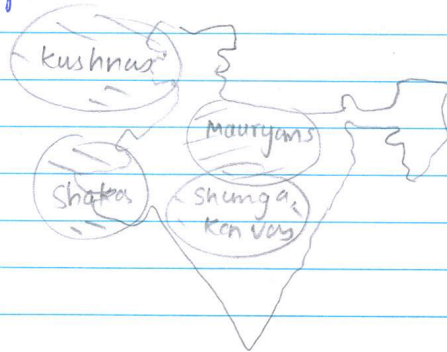 Kushnas
Mauryans
Shakas
Shunga,
Kanvas